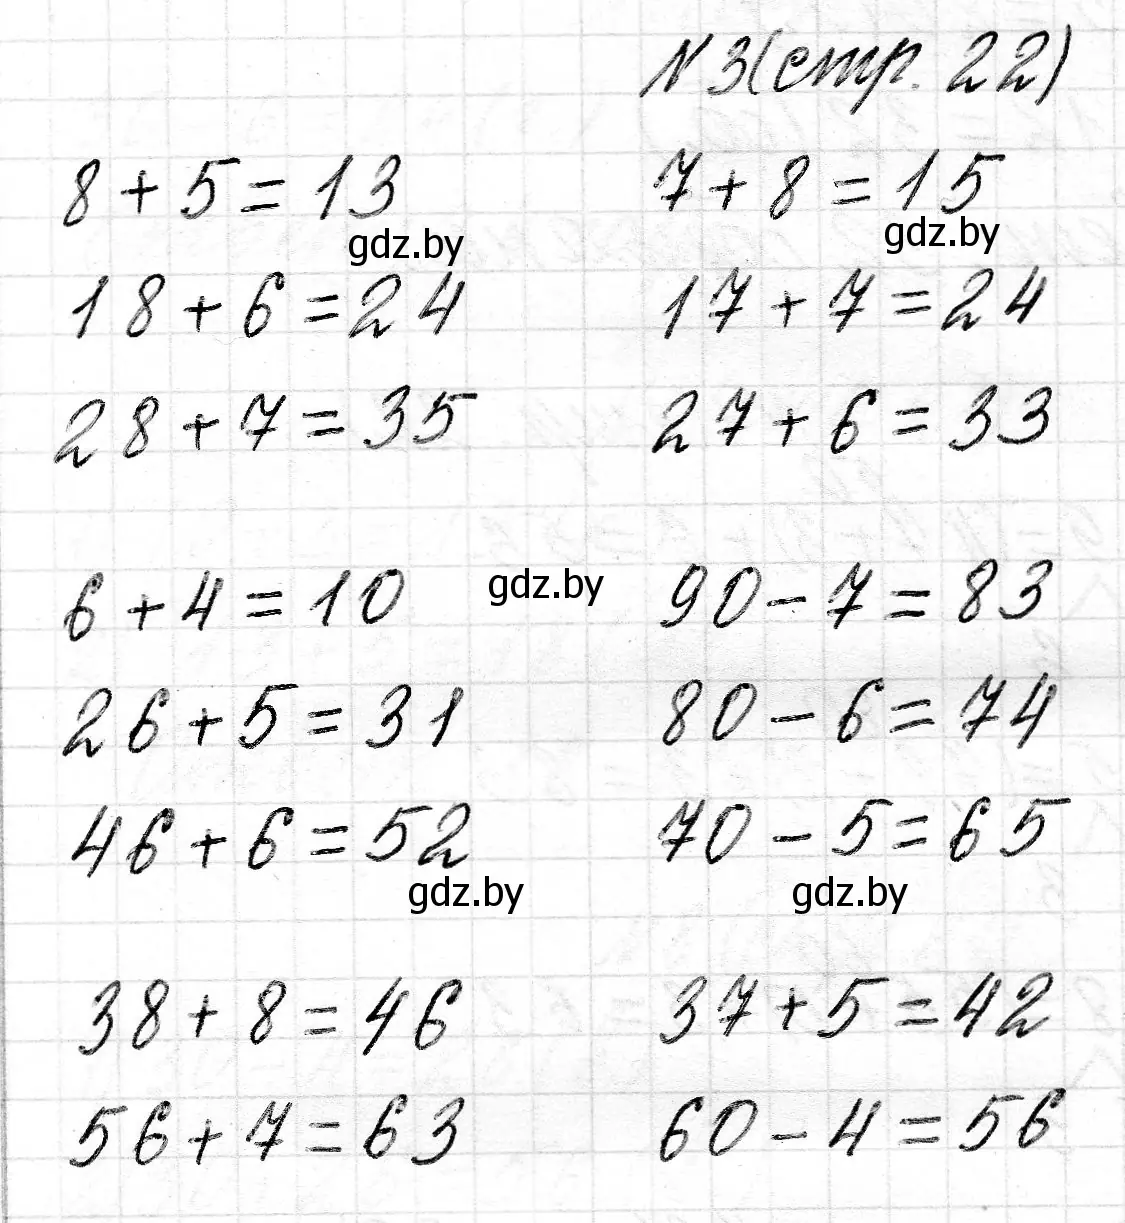 N 3 (стр. 22)
8 + 5 = 13 7 + 8 = 15
gdz.by gdz.by
18 + 6 = 24 17 + 7 = 24
28 + 7 = 35 27 + 6 = 33
6 + 4 = 10 gdz.by 90 - 7 = 83
26 + 5 = 31 80 - 6 = 74
46 + 6 = 52 70 - 5 = 65
gdz.by gdz.by
38 + 8 = 46 37 + 5 = 42
56 + 7 = 63 60 - 4 = 56